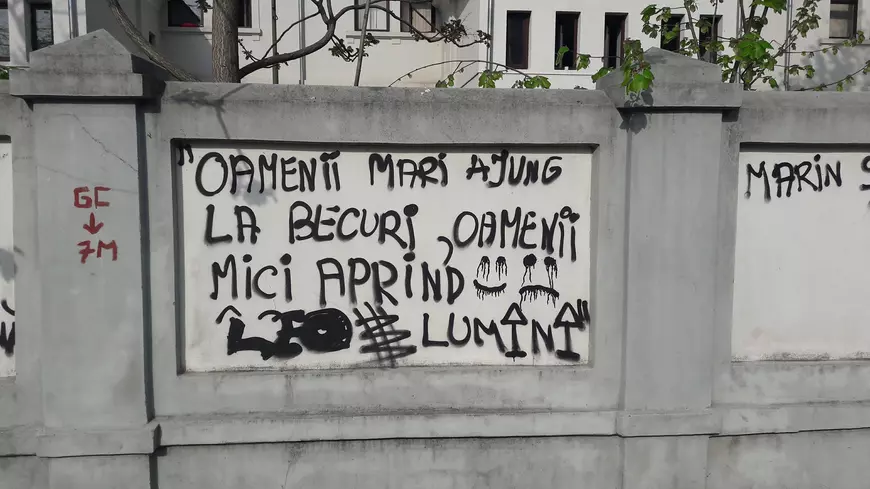 GC
7M
"OAMENII MARI AJUNG
LA BECURI, OAMENII
MICI APRIND
LUMINI"
MARIN